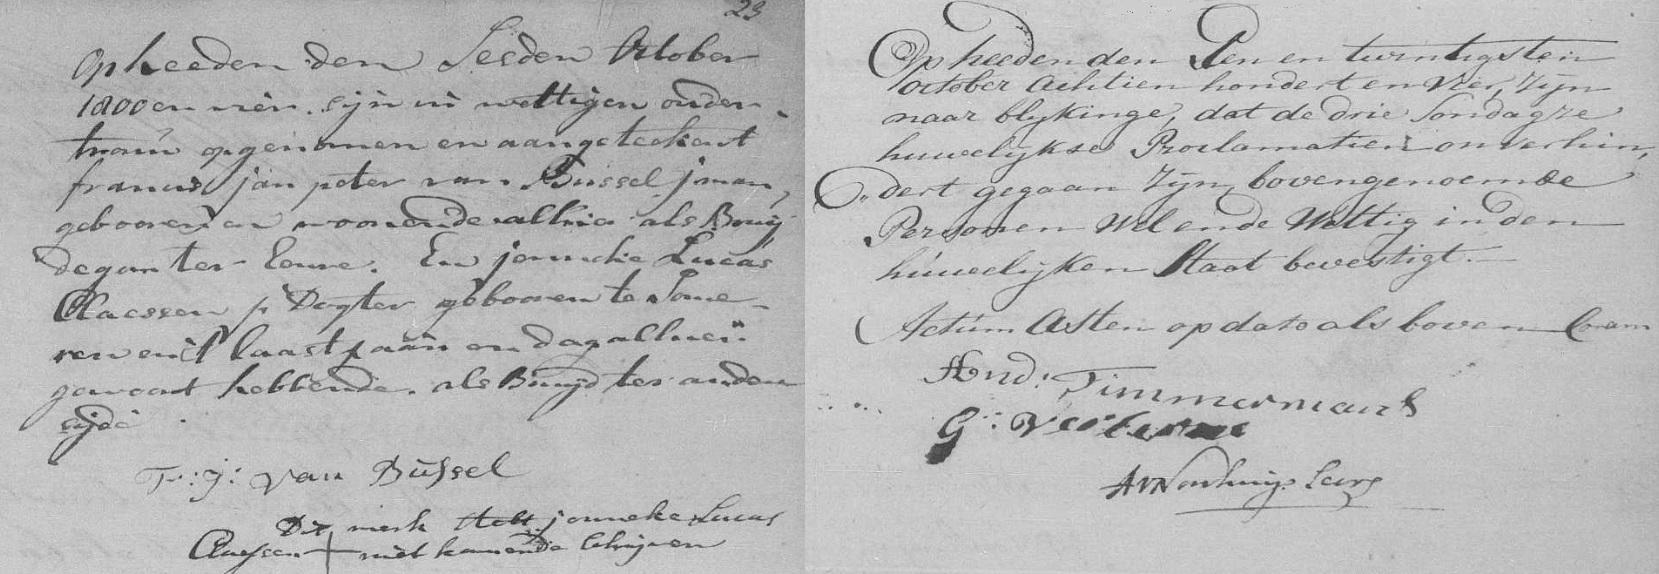 23
Op heeden den Sesden October
1800 en vier sijn in wettigen onder
trouw opgenomen en aangeteekent
francis jan peter van Bussel jman,
gebooren en woonende alhier als Bruij
degom ter Eenre. En jenneke Lucas
Claessen j Dogter gebooren te Some-
ren en laast gaan en dag alhier
gewoont hebbende. als Bruijd ter andere
sijde
F: j: van Bussel
Dit merk stelt jenneke Lucas
Claessen niet kunnende schrijven
Op heeden den Een en twintigsten
october achtien hondert en vier, zyn
naar blykinge, dat de drie Sondagze
huwelykse Proclamatien onverhin,
dert gegaan zyn, bovengenoemde
Persoonen Wel ende Wettig in den
huwelijken Staat bevestigt.
Actum Asten op dato als boven Coram
And: Timmermans
G: